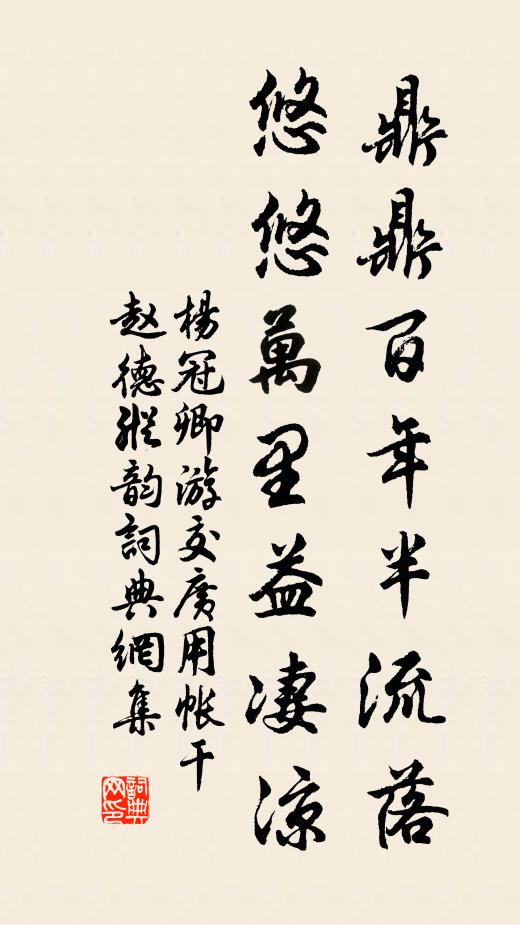 鼎鼎百年半流落
悠悠萬里益凄涼
楊冠卿游交廣用帐干
赵德縱韵詞典網集
詞典网印